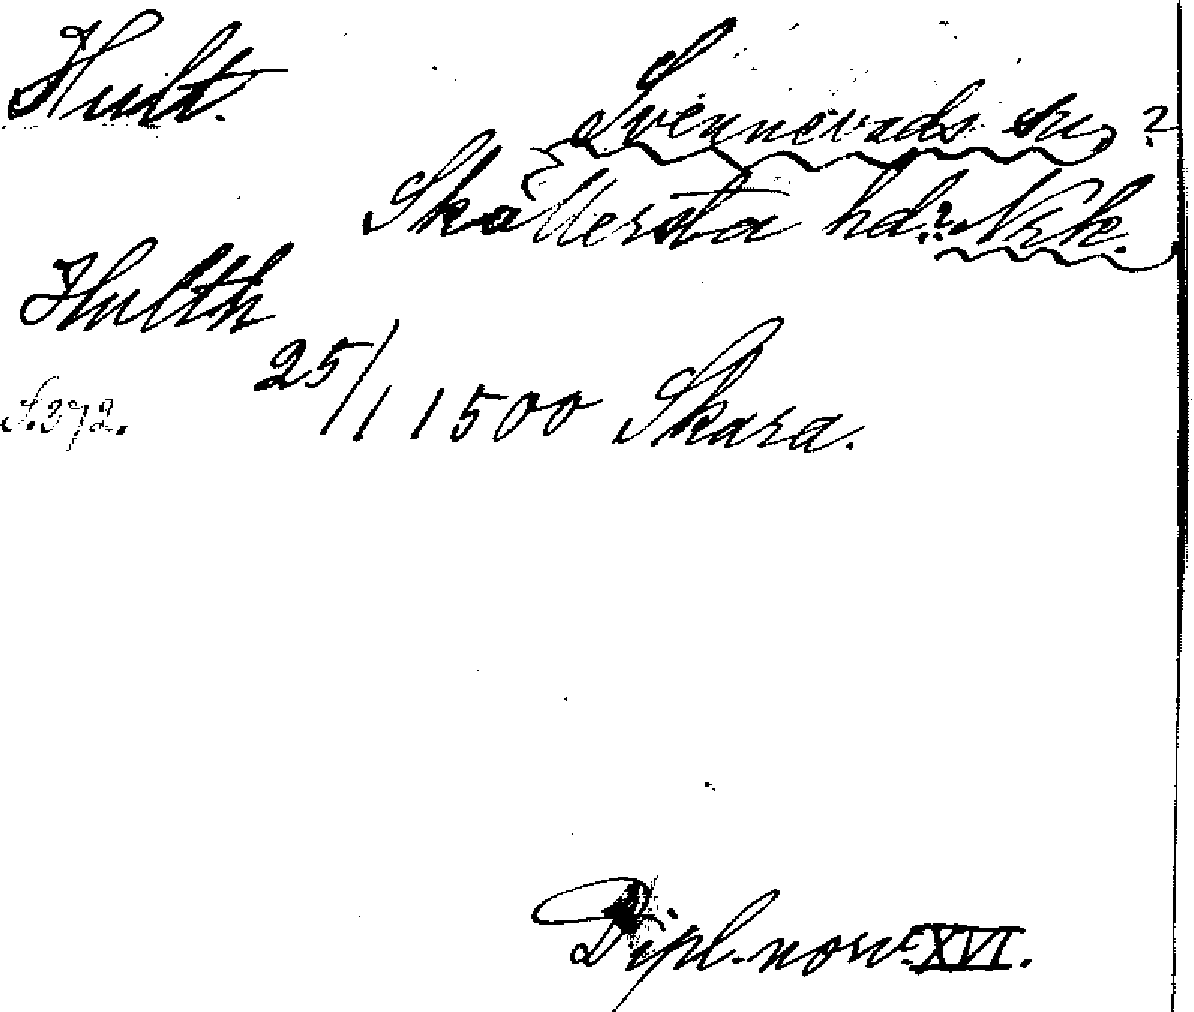 Hult. Svennevads sn ?
Skållersta hd.? Nrk.
Hulth
25/1 1500 Skara.
S. 372.
Dipl. norv. XVI.